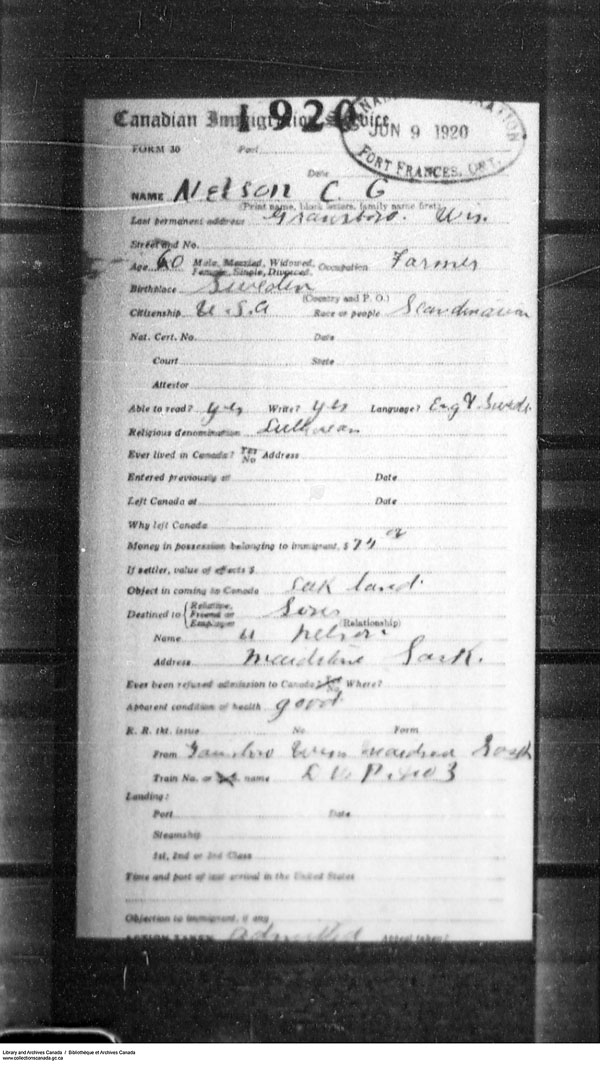 1920
Canadian Immigration Service
JUN 9 1920
FORT FRANCES, ONT.
FORM 30 Port
Date
NAME Nelson C. G
(Print name, block letters, family name first)
Last permanent address Wis.
Street and No.
Age 60 Male, Married, Widowed, Occupation Farmer
Female, Single, Divorced.
Birthplace Sweden
(Country and P. O.)
Citizenship U.S.A Race or people Scandinavian
Nat. Cert. No. Date
Court State
Attestor
Able to read? yes Write? yes Language? Eng & Swede
Religious denomination Lutheran
Ever lived in Canada? Yes No Address
Entered previously at Date
Left Canada at Date
Why left Canada
Money in possession belonging to immigrant, $
If settler, value of effects $
Object in coming to Canada land
Destined to Relative, Friend or Employer Sons
(Relationship)
Name Nelson
Address Maidstone Sask.
Ever been refused admission to Canada? No Where?
Apparent condition of health good
R. R. tkt. issue No Form
From
Train No. or name
Landing:
Port Date
Steamship
1st, 2nd or 3rd Class
Time and port of last arrival in the United States
Objection to immigrant, if any
ACTION TAKEN admitted Appeal taken?
Library and Archives Canada / Bibliothèque et Archives Canada
www.collectionscanada.gc.ca